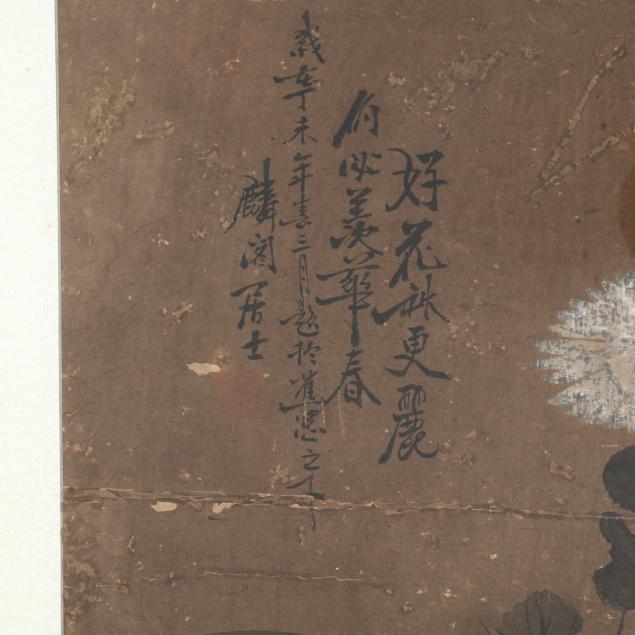 好花秋更麗
何必羨華春
歲在丁未年春三月題於蕉窓之下
麟閣居士